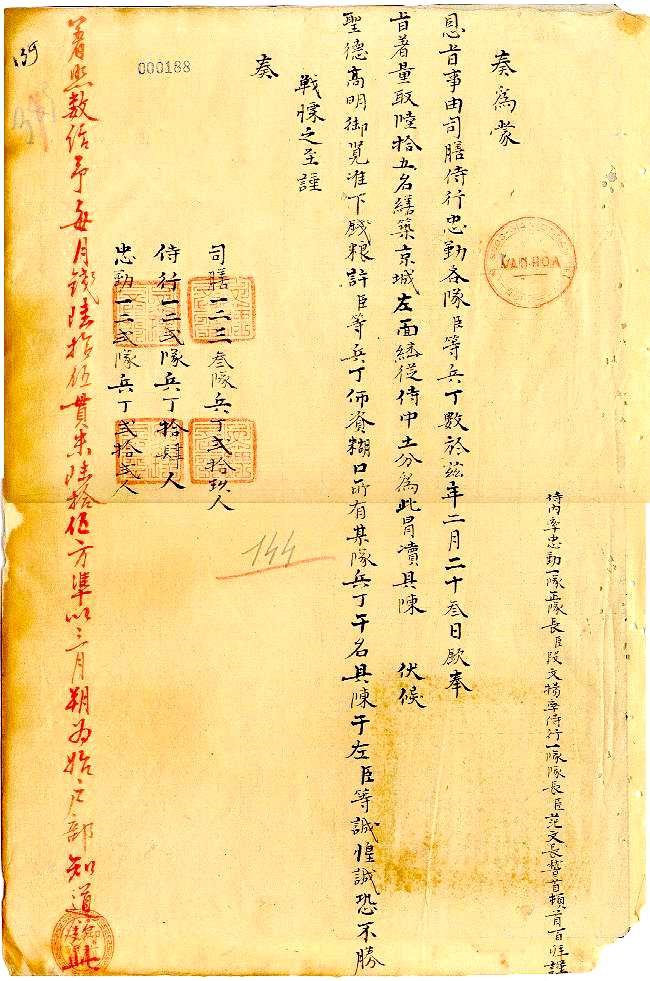 侍內率忠勤一隊正隊長臣段文率侍行一隊隊長臣范文長稽首頓首百拜謹
奏爲蒙
恩旨事由司膳侍行忠勤各隊臣等兵丁數於茲年二月二十叁日欽奉
旨著量取陸拾五名繕築京城左面繼從侍中土分爲此冒瀆具陳 伏候
聖德高明御覽准下錢粮許臣等兵丁俾資糊口所有某隊兵丁干名具陳于左臣等誠惶誠恐不勝
戰慄之至謹
奏
司膳一二三叁隊兵丁弍拾玖人
侍行一二弍隊兵丁拾肆人
忠勤一二弍隊兵丁弍拾弍人
著照數給予每月錢陸拾伍貫米陸拾伍方準以三月朔为始户部知道此
000188
159
144
VAN-HOA